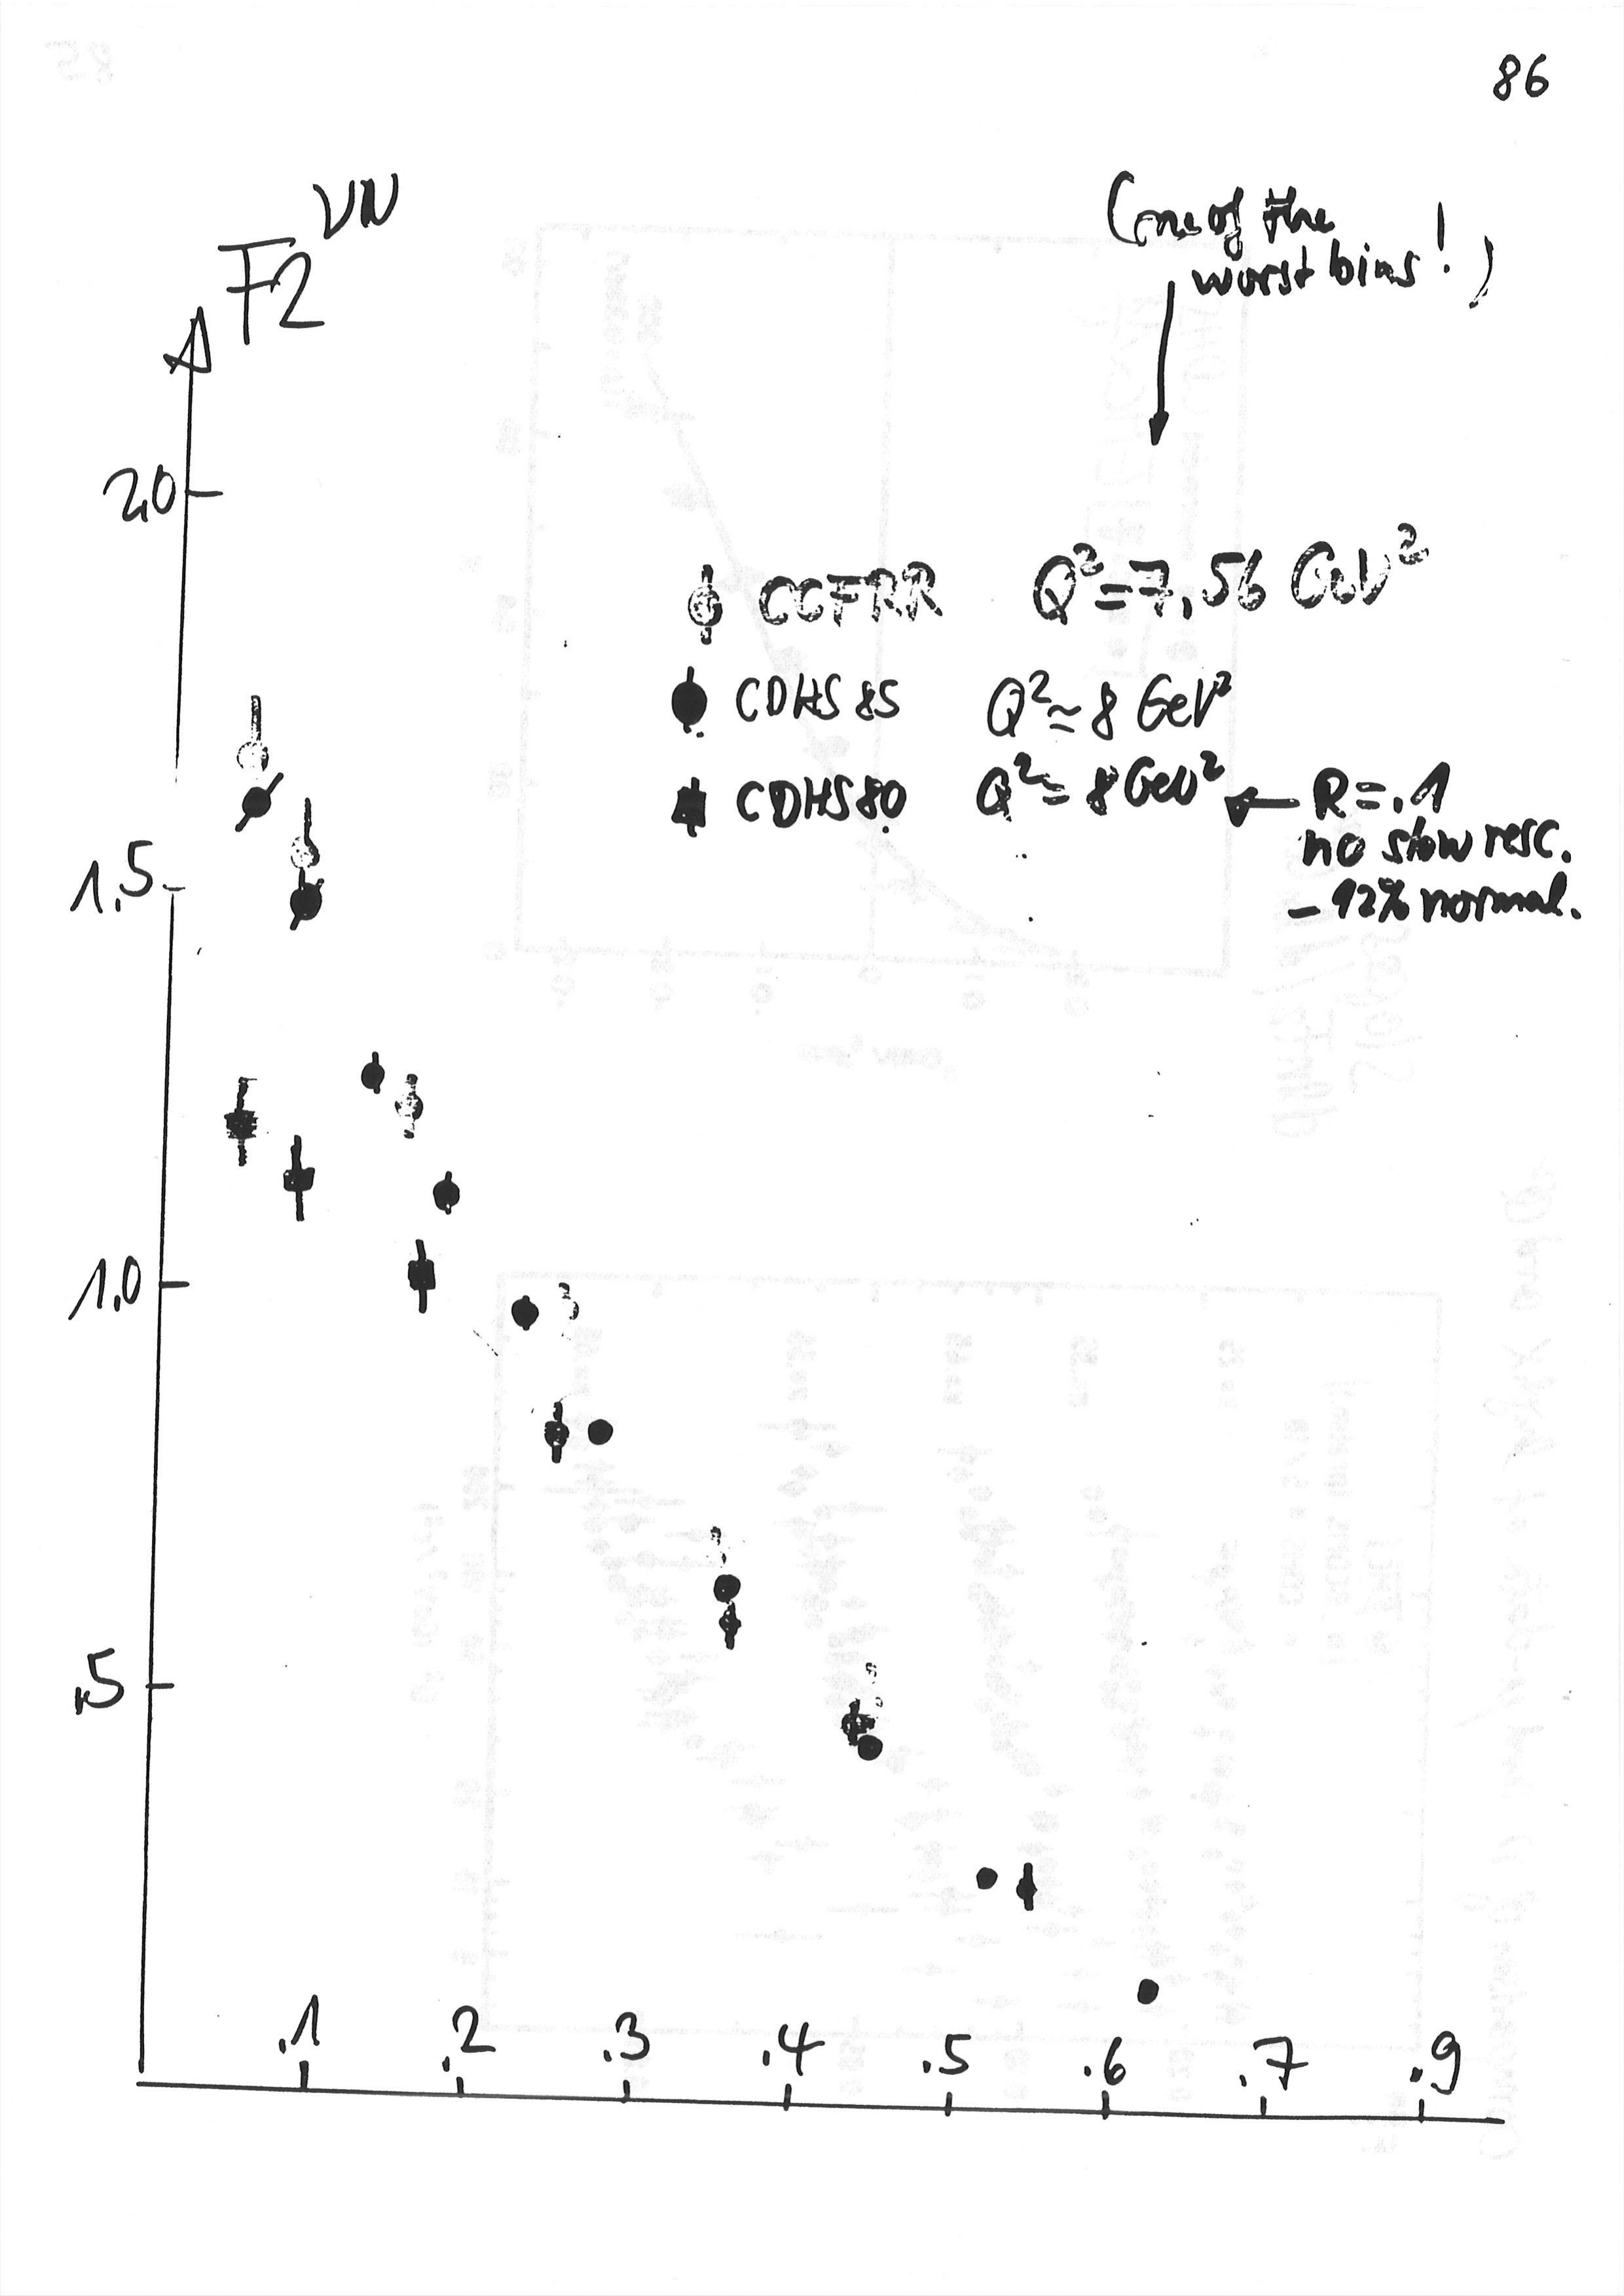 86
F2 νN
(one of the
worst bins!)
2,0
CCFRR Q²=7,56 GeV²
CDHS 85 Q²≃8 GeV²
CDHS 80 Q²=8 GeV² ← R=.1
no slow resc.
1,5
- 12% normal.
1,0
,5
.1 .2 .3 .4 .5 .6 .7 .9